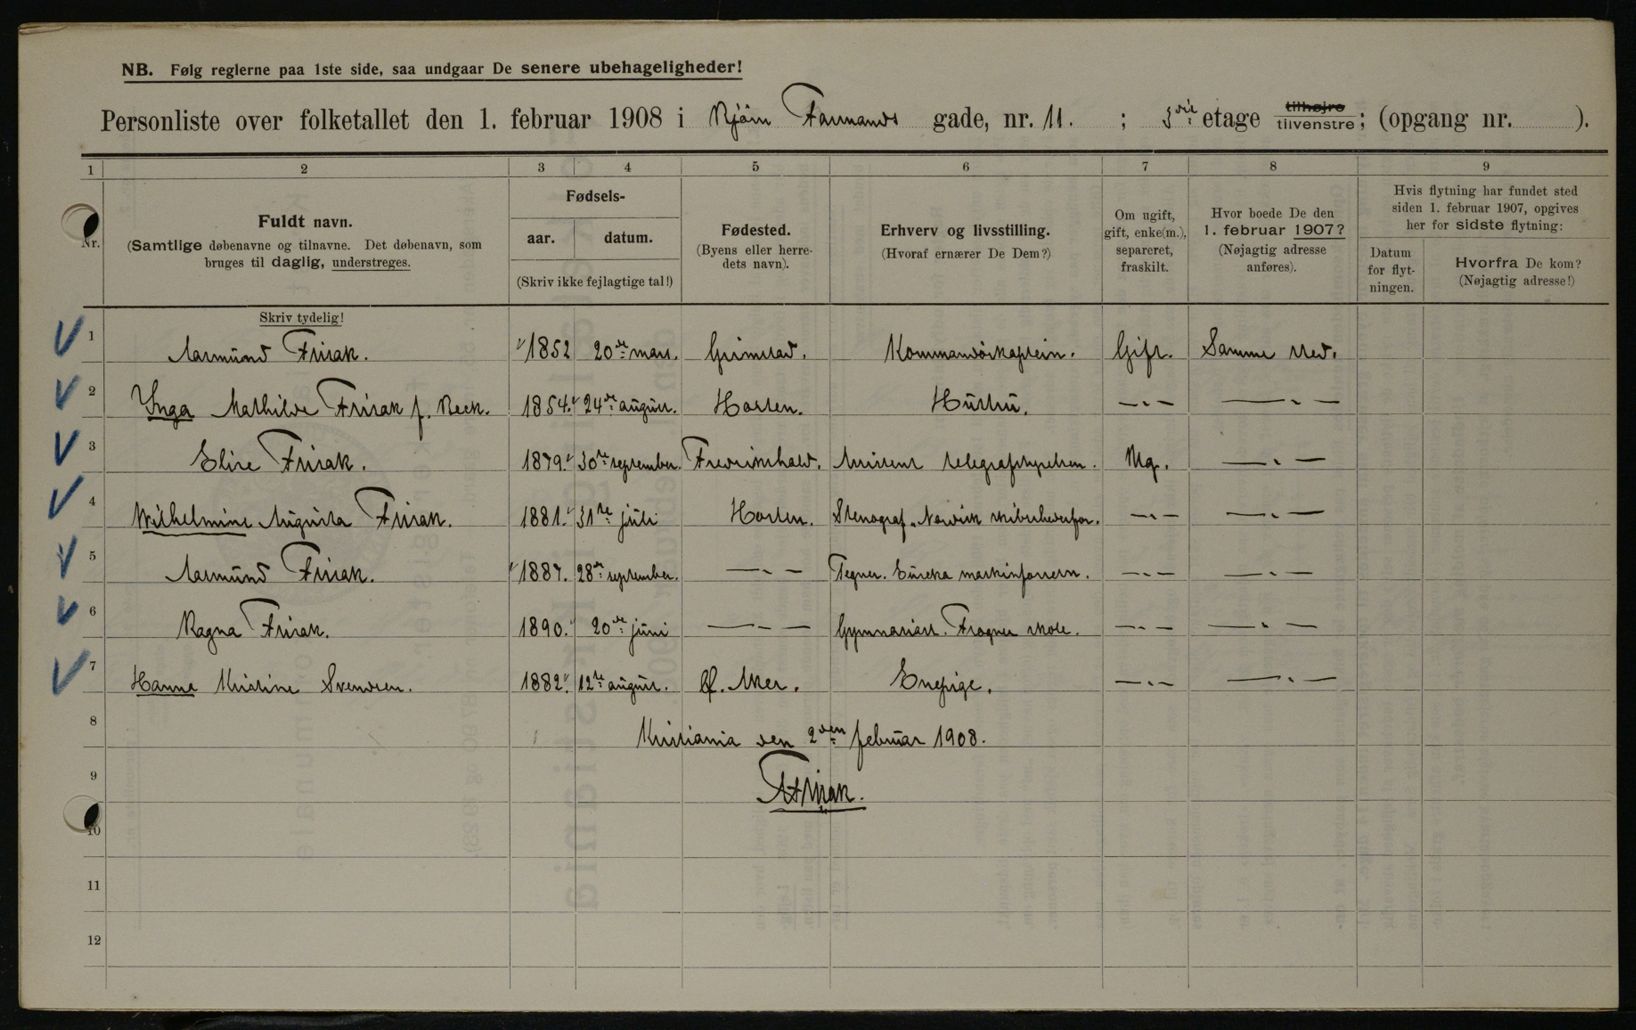 NB. Følg reglerne paa 1ste side, saa undgaar De senere ubehageligheder!
Personliste over folketallet den 1. februar 1908 i Bjørn Farmands gade, nr. 11. ; 3die etage tilhøjre tilvenstre; (opgang nr. ).
1 2 3 4 5 6 7 8 9
Nr.
Fuldt navn.
(Samtlige døbenavne og tilnavne. Det døbenavn, som
bruges til daglig, understreges.
Skriv tydelig!
Fødsels-
aar. datum.
(Skriv ikke fejlagtige tal!)
Fødested.
(Byens eller herre-
dets navn).
Erhverv og livsstilling.
(Hvoraf ernærer De Dem?)
Om ugift,
gift, enke(m.),
separeret,
fraskilt.
Hvor boede De den
1. februar 1907?
(Nøjagtig adresse
anføres).
Hvis flytning har fundet sted
siden 1. februar 1907, opgives
her for sidste flytning:
Datum
for flyt-
ningen.
Hvorfra De kom?
(Nøjagtig adresse!)
1 Aasmund Frisak. 1852 20de mars. Grimstad. Kommandørkaptein. Gift. Samme sted.
2 Inga Mathilde Frisak f. Beck. 1854. 24de august. Horten. Hustru. —"— —"—
3 Elise Frisak. 1879. 30te september. Fredrikshald. Assistent telegrafstyrelsen. Ug. —"—
4 Wilhelmine Augusta Frisak. 1881. 31te juli Horten. Stenograf. Nordisk skibsrederfor. —"— —"—
5 Aasmund Frisak. 1887. 28de september. —"— Tegner. Eureka maskinforretn. —"— —"—
6 Ragna Frisak. 1890. 20de juni —"— Gymnasiast. Frogner skole. —"— —"—
7 Hanna Kristine Svendsen. 1882. 12te august. Ø. Aker. Enepige. —"— —"—
8 Kristiania den 2den februar 1908.
9 AFrisak.
10
11
12